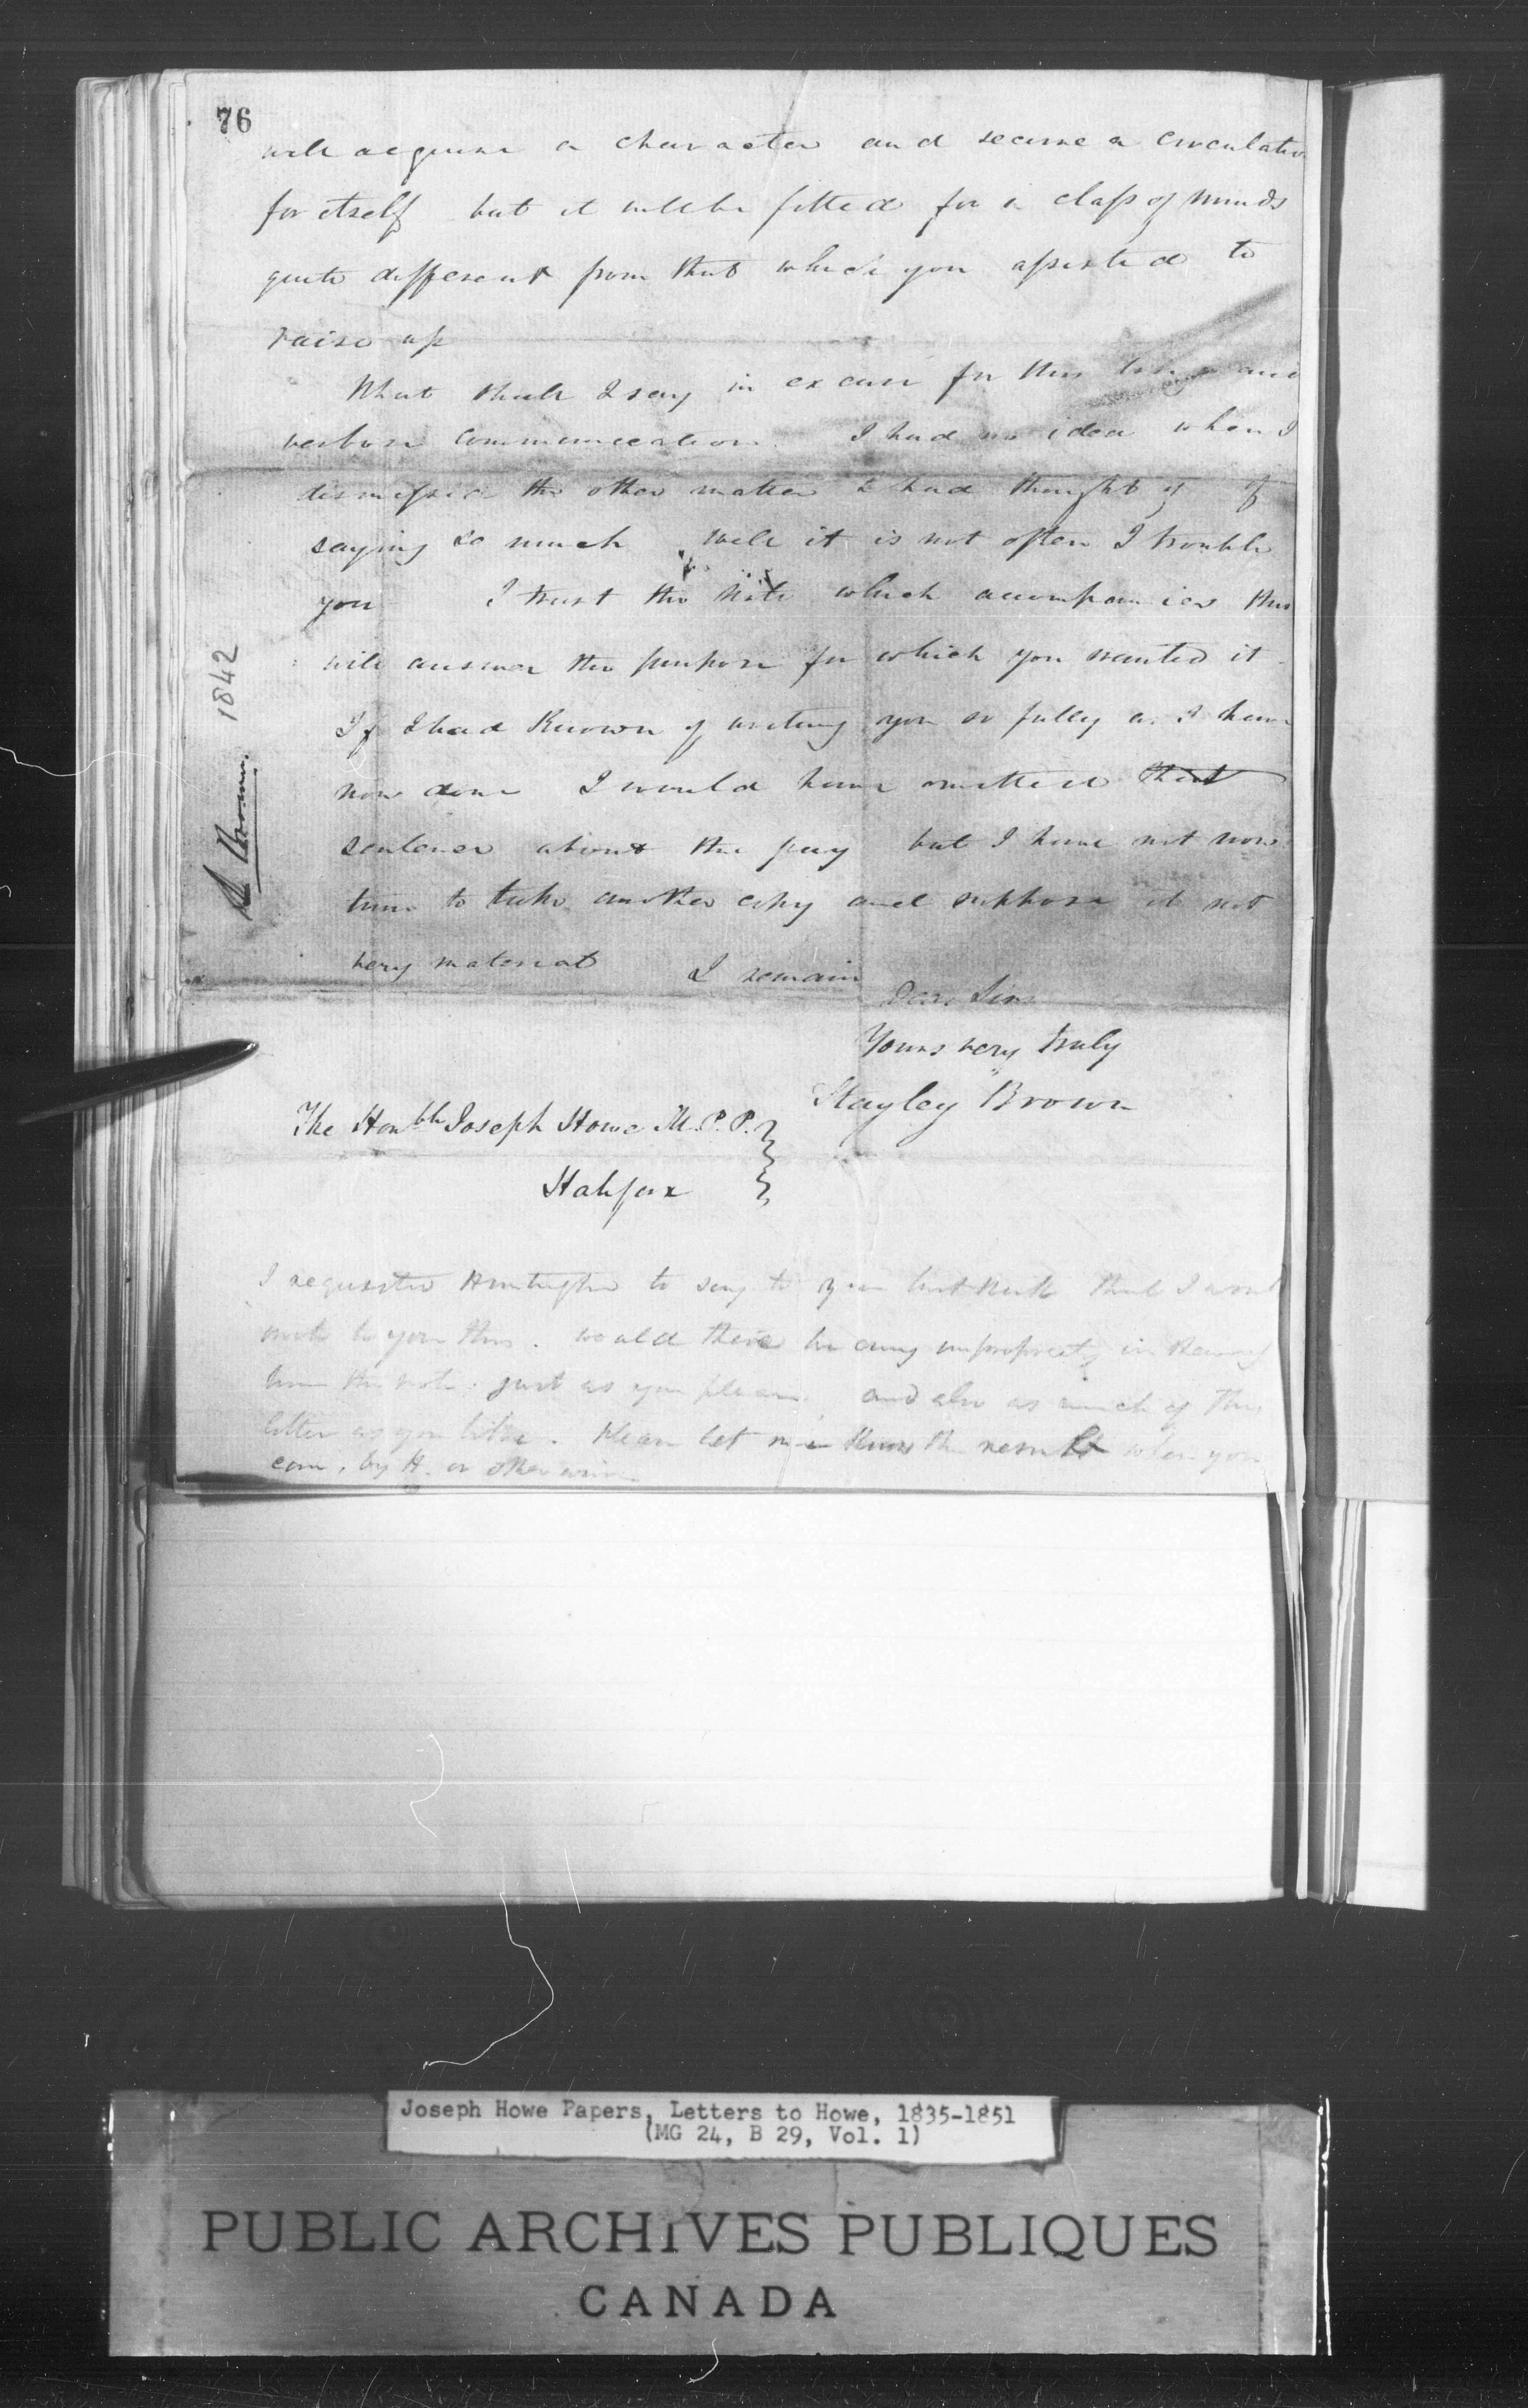 76
will acquire a character and secure a circulation
for itself but it will be fitted for a class of minds
quite different from that which you assisted to
raise up
What shall I say in excuse for this long and
verbose communication. I had no idea when I
dismissed the other matter I had thought of of
saying so much well it is not often I trouble
you I trust the Note which accompanies this
will answer the purpose for which you wanted it.
If I had Known of writing you so fully as I have
now done I would have omitted that
sentence about the pay but I have not now
time to take another copy and suppose it not
very material I remain
Dear Sir
Yours very truly
Stayley Brown
The Honble Joseph Howe M.P.P.
Halifax
I requested Huntington to say to you last that I would
write to you this. would there be any impropriety in
him the note. just as you please. and also as much of this
letter as you like. Please let me know the result when you
can, by H. or otherwise
S. Brown. 1842
Joseph Howe Papers, Letters to Howe, 1835-1851
(MG 24, B 29, Vol. 1)
PUBLIC ARCHIVES PUBLIQUES
CANADA